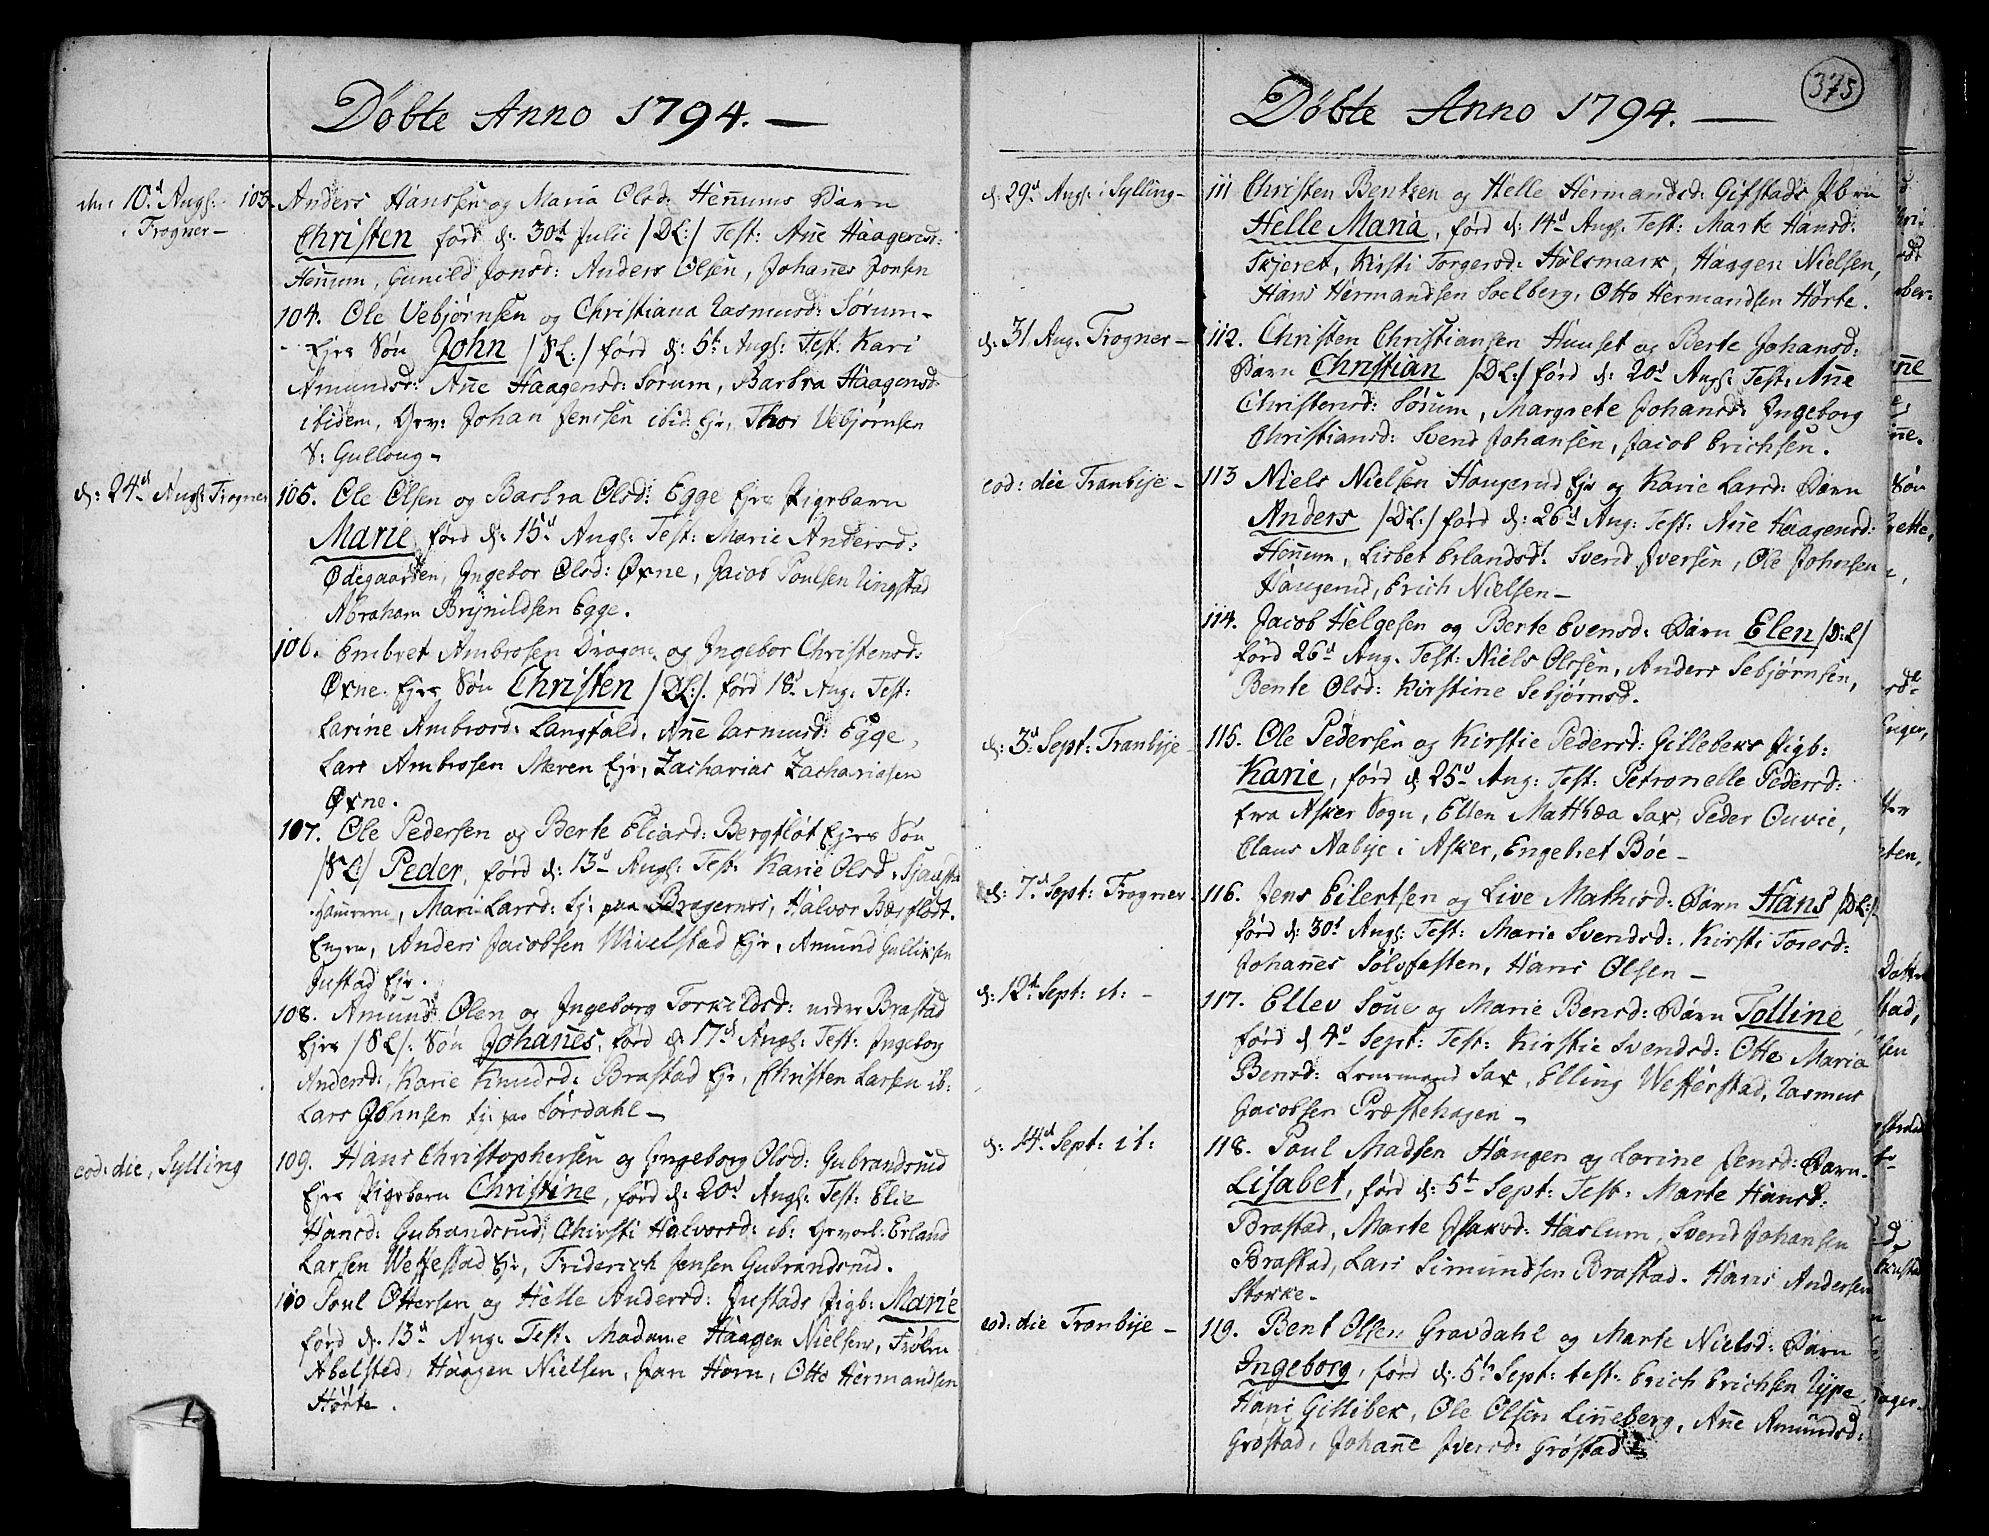 Döbte Anno 1794. —
den 10d Augs:
i Frogner —
103. Anders Hanssen og Maria Olsd: Hennums Barn
Christen förd d: 30t Julii /DL:/ Test: Anne Haagensd:
Hennum, Gunild Jonsd: Anders Olsen, Johannes Jonsen
104. Ole Vebjørnsen og Christiana Rasmusd: Sørum-
Ejes Søn John /SL:/ förd d: 5t Augs: Test: Kari
Amundsd: Anne Haagensd: Sørum, Barbra Haagensd:
ibidem, Grv: Johan Jenssen ibid: Eje, Thor Vebjørnsen
S: Gullaug —
d: 24d Augs: Frogner
105. Ole Olsen og Barbra Olsd: Egge Ejes Pigebarn
Marie förd d: 15d Augs: Test: Marie Andersd:
Ødegaarden, Ingebor Olsd: Øxne, Jacob Poulsen Ringstad
Abraham Brynildsen Egge.
106. Embret Ambrosen Dragon, og Ingebor Christensd:
Øxne Ejes Søn Christen /DL:/. förd 18d Aug: Test:
Larine Ambrosd: Langfald, Anne Rasmusd: Egge,
Lars Ambrosen Meren Eje, Zacharias Zachariasen
Øxne.
107. Ole Pedersen og Berte Eliasd: Bergfløt Ejes Søn
/SL:/ Peder, förd d: 13d Augs: Test: Karie Olsd:
Mari Larsd: Ej: paa Bragernes, Halvor Bærflødt.
Engen, Anders Jacobsen Wivelstad Eje, Amund Gulliksen
Justad Eje.
108. Amund Olen og Ingeborg Torkildsd: nedre Brastad
Ejes /SL/. Søn Johannes, förd d: 17d Augs: Test: Ingeborg
Andersd: Karie Knudsd: Brastad Eje, Christen Larsen ib:
Lars Johnsen Ej: paa Sørsdahl —
eod: die, Sylling
109. Hans Christophersen og Ingeborg Olsd: Gubrandsrud
Ejes Pigebarn Christine, förd d: 20d Augs: Test: Elie
Hansd: Gubrandsrud, Chirsti Halvorsd: ib: Erland
Larsen Weffestad Eje, Friderich Jensen Gubrandsrud.
110 Poul Ottersen og Helle Andersd: Justads Pigb: Marie
förd d: 13d Aug: Test: Madame Haagen Nielsens, Frøken
Abelsted, Haagen Nielsen, Jan Horn, Otto Hermandsen
Hörte.
375
Döbte Anno 1794. —
d: 29d Augs: i Sylling —
111 Christen Bentsen og Helle Hermandsd: Gifstads Pbrn
Helle Maria, förd d: 14d Augs. Test: Marte Hansd:
Skjeret, Kirsti Torgersd: Holsmark, Haagen Nielsen,
Hans Hermandsen Soelberg, Otto Hermandsen Hörte.
d: 31 Aug. Frogner —
112. Christen Christiansen Huuset og Berte Johansd:
Barn Christian /DL:/ förd d: 20d Augs: Test: Anne
Christensd: Sørum, Margrete Johansd: Ingeborg
Christiansd: Svend Johansen, Jacob Erichsen.
eod: die Tranbye —
113 Niels Nielsen Haugerud Eje og Karie Larsd: Barn
Anders /DL:/ förd d: 26d Aug: Test: Anne Haagensd:
Honnum, Lisbet Erlandsd: Svend Iversen, Ole Johnsen
Haugerud, Erich Nielsen —
114. Jacob Helgesen og Berte Evensd: Barn Elen /D:L/
förd 26d Aug. Test: Niels Olssen, Anders Sebjørnsen,
Bente Olsd: Kirstine Sebjørnsd.
d: 3d Sept: Tranbye —
115. Ole Pedersen og Kirstie Pedersd: Gilleber Pigb:
Karie, förd d: 25d Aug: Test: Petronelle Pedersd:
fra Asker Sogn, Ellen Matthæa Sax, Peder Ouvie,
Claus Nabye i Asker, Engebret Böe —
d: 7d Sept: Frogner
116. Jens Eilertsen og Live Mathisd: Barn Hans /DL:/
förd d: 30t Augs: Test: Marie Svendsd: Kirsti Toresd:
Johannes Sølvfasten, Hans Olsen —
d: 12t Sept: it: —
117. Ellev Soue og Marie Bensd: Barn Tolline
förd d 4d Sept: Test: Kirstie Svendsd: Otte Maria
Bensd: Lensmand Sax, Elling Wefferstad, Rasmus
Jacobsen Præstehagen —
d: 14d Sept: it:
118. Poul Madsen Haugen og Larine Jensd: Barn
Lisabet, förd d: 5t Sept: Test: Marte Hansd:
Brastad, Marte Isaksd: Haslum, Svend Johansen
Brastad, Lars Simundsen Brastad. Hans Andersen
Stokke —
eod: die Tranbye —
119. Bent Olsen Gravdahl og Marte Nielsd: Barn
Ingeborg, förd d: 5t Sept: test: Erich Erichsen Rype,
Hans Gillibek, Ole Olsen Linneberg, Anne Amundsd:
Grøstad, Johanne Iversd: Grøstad